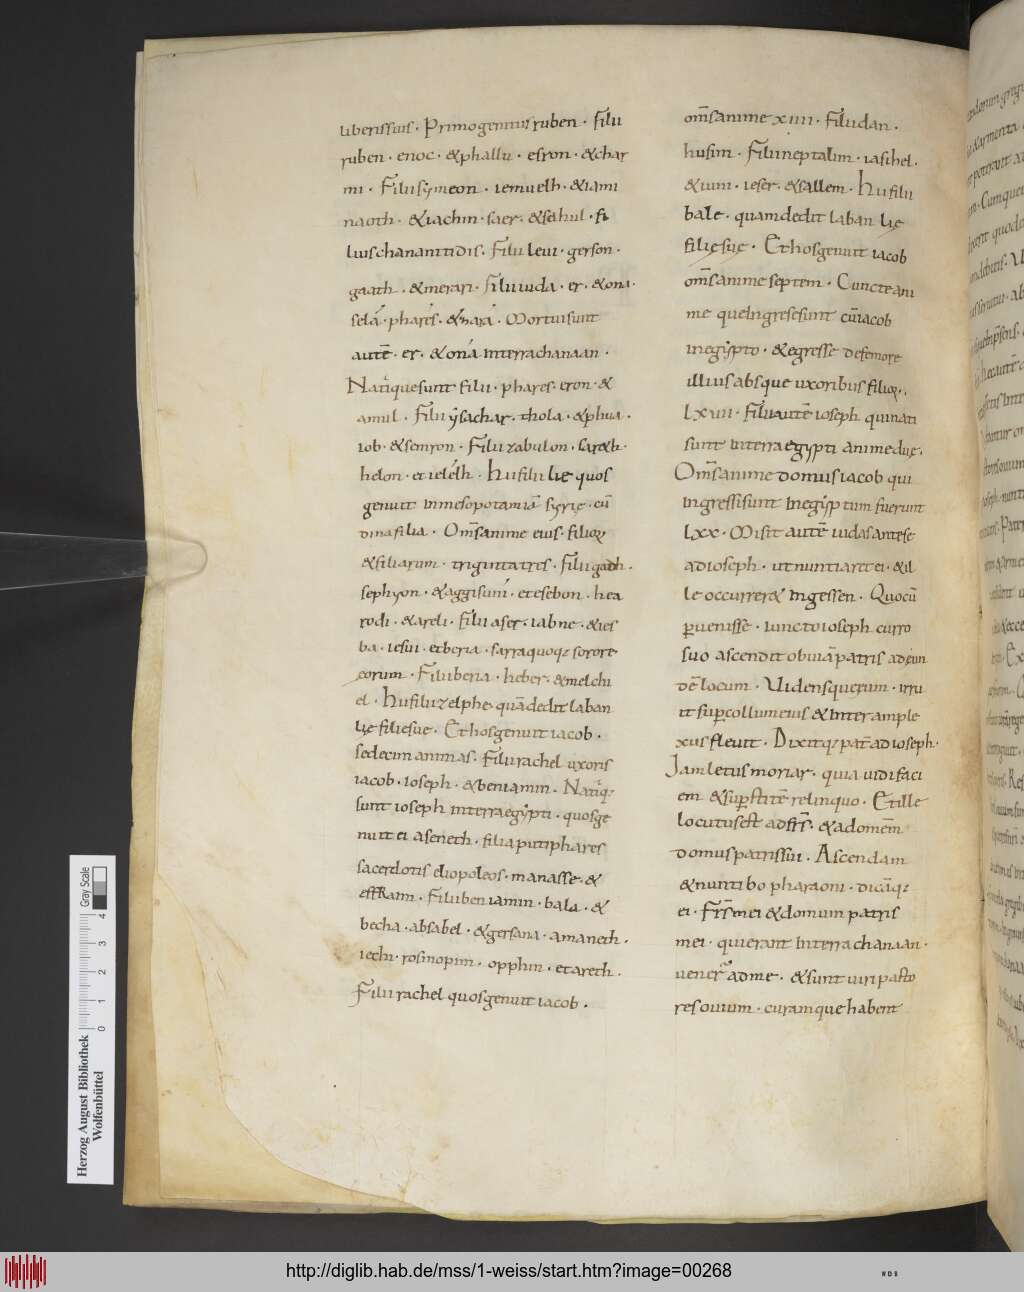 liberissuis · Primogenitus ruben · filii
ruben · enoc · &phallu · esron · &char
mi · Filii sẏmeon · iemuelh · &iami
naoth · &iachin · saer · &sahul · fi
lius chananitidis · Filii leui · gerson ·
gaath · &merari · filii iuda · er · &ona ·
selá · phares · &zara · Mortui sunt
autē · er · & oná interra chanaan ·
Natiquesunt filii · phares · eron · &
amul · Filii ẏsachar · thola · &phua ·
iob · &semron · Filii zabulon · sareth ·
helon · et ielélh · Hi filii lię quos
genuit in mesopotamiā syrię · cū
dina filia · Om̄s animę eius · filioꝝ
&filiarum · triginta tres · Filii gadh ·
sephyon · &aggi suni · et esebon · hea
rodi · &areli · filii aser · iabne · &ies
ba · iesui · et beria · sarra quoqꝫ soror e
eorum · Filii beria · heber · &melchi
el · Hi filii zelphe · quā dedit laban
lię filię suę · Et hos genuit iacob ·
sedecim animas · Filii rachel uxoris
iacob · ioseph · &beniamin · Natiqꝫ
sunt ioseph interra egẏpti · quos ge
nuit ei aseneth · filia putiphares
sacerdotis eliopoleos · manasse · &
effraim · Filii beniamin · bala · &
becha · absabel · &gersana · amaneth ·
iechi · ros mopim · opphin · et areth ·
Filii rachel quos genuit iacob ·
om̄s animę xiiii · Filii dan ·
husim · Filii neptalim · iasihel ·
&iuni · ieser · &sallem · Hi filii
bale · quam dedit laban lię
filię suę · Et hos genuit iacob
om̄s animę septem · Cuncte ani
mę que ingresę sunt cū iacob
in egẏpto · &egresse de femore
illius absque uxoribus filioꝝ ·
lxvii · Filii autē ioseph qui nati
sunt in terra egypti animę duę ·
Om̄s animę domus iacob qui
ingressi sunt in egẏptum fuerunt
lxx · Misit autē iudas ante se
ad ioseph · ut nuntiaret ei · &il
le occurrer& in gessen · Quo cū
ꝑuenisse · iuncto ioseph curro
suo ascendit obuiā patris ad eun
dē locum · Uidensque eum · irru
it suꝑ collum eius &inter ample
xus fleuit · Dixitqꝫ pat̄ ad ioseph ·
Iam letus moriar · quia uidi faci
em &suꝑstitē relinquo · Et ille
locutus est ad fr̄s · &ad omēm
domus patris sui · Ascendam
&nuntibo pharaoni · dicāqꝫ
ei · Fr̄s mei &domum patris
mei · qui erant in terra chanaan ·
uener̄ ad me · &sunt uiri pasto
res ouium · curamque habent
http://diglib.hab.de/mss/1-weiss/start.htm?image=00268
Herzog August Bibliothek
Wolfenbüttel
0 1 2 3 4
Gray Scale